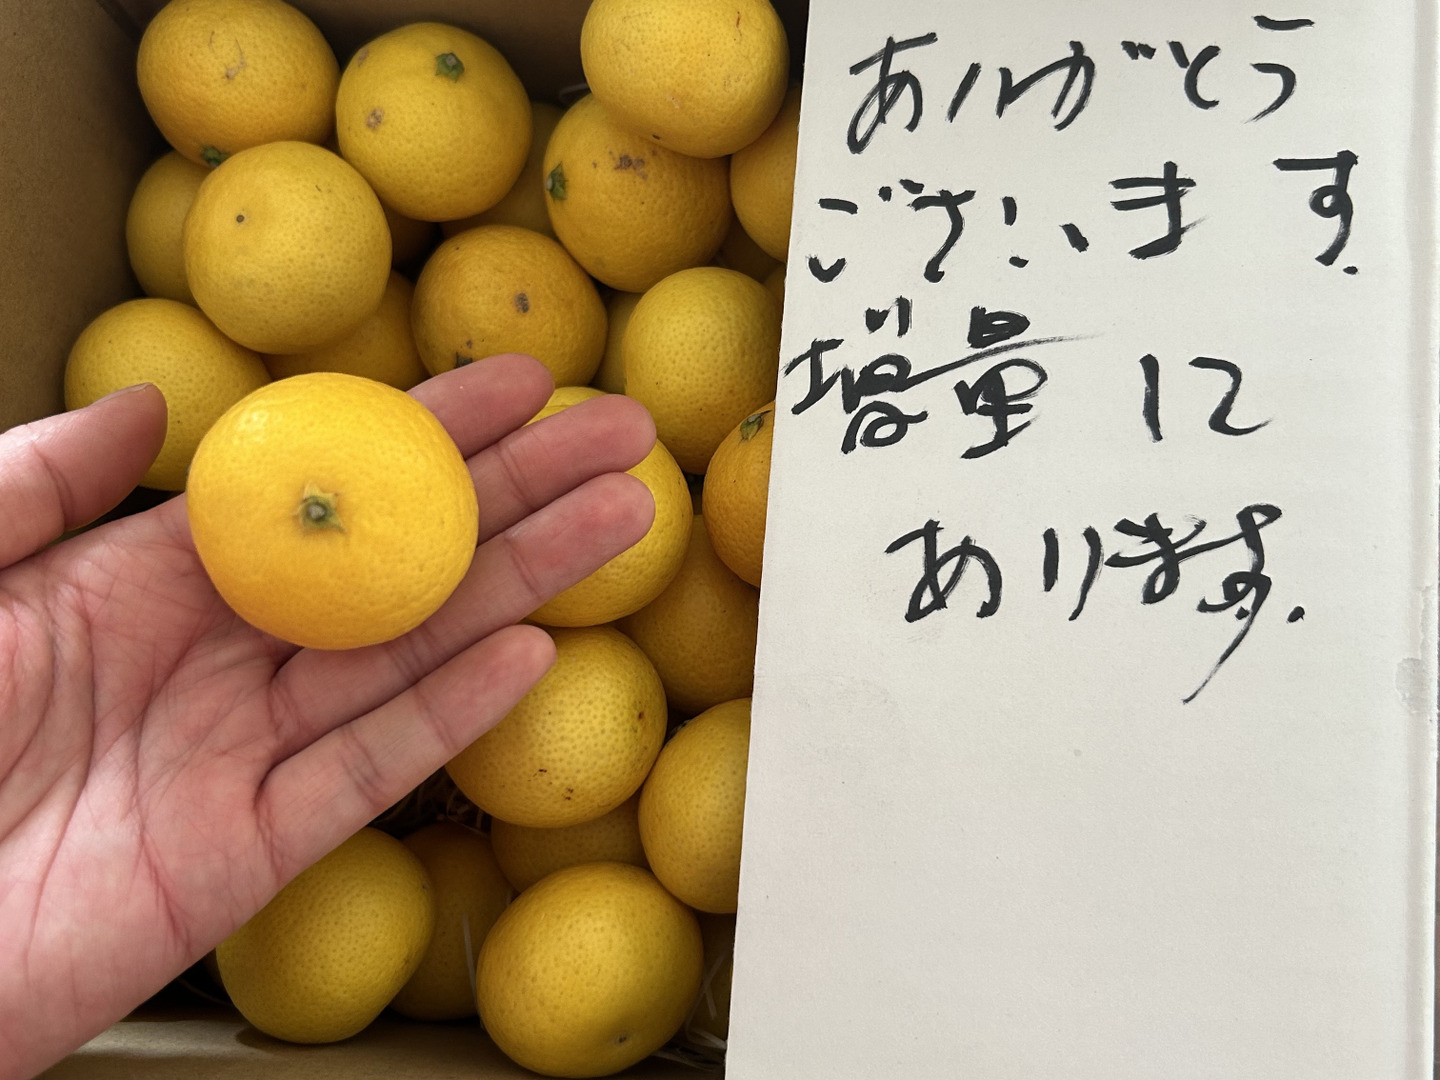 ありがとう
ございます.
増量に
あります.